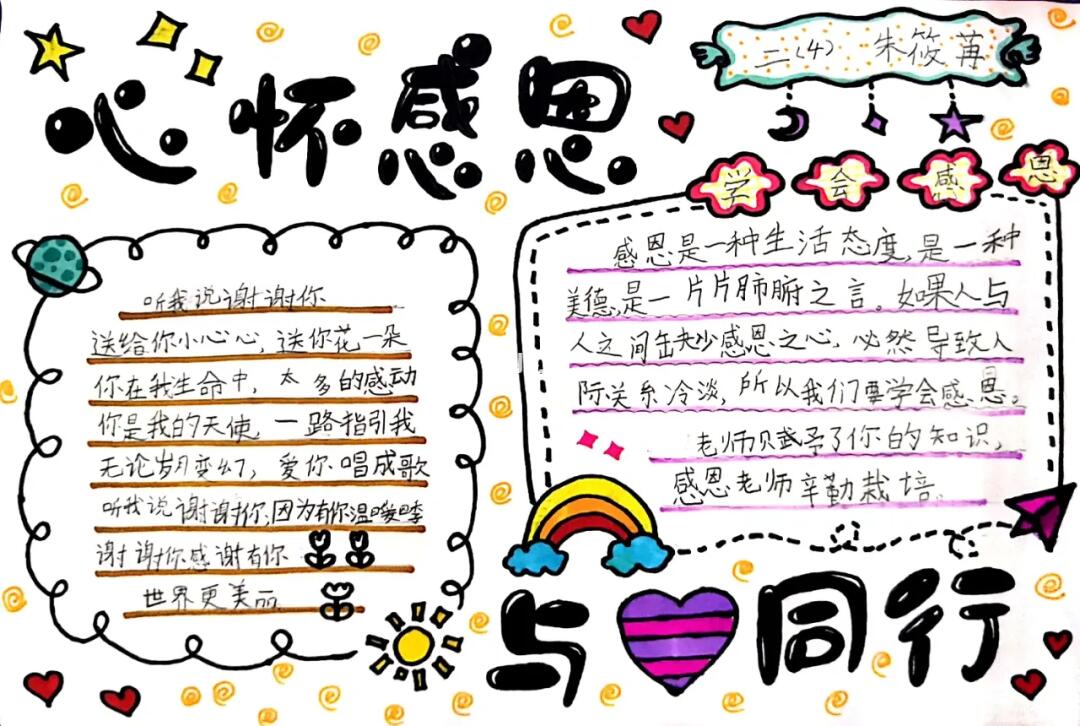 心怀感恩
二(4) 朱筱苒
学会感恩
听我说谢谢你
送给你小心心,送你花一朵
你在我生命中,太多的感动
你是我的天使,一路指引我
无论岁月变幻,爱你唱成歌
听我说谢谢你,因为有你温暖四季
谢谢你感谢有你
世界更美丽
感恩是一种生活态度,是一种
美德,是一片片肺腑之言。如果人与
人之间缺少感恩之心,必然导致人
际关系冷淡,所以我们要学会感恩。
老师赋予了你的知识,
感恩老师辛勤栽培。
与 同行